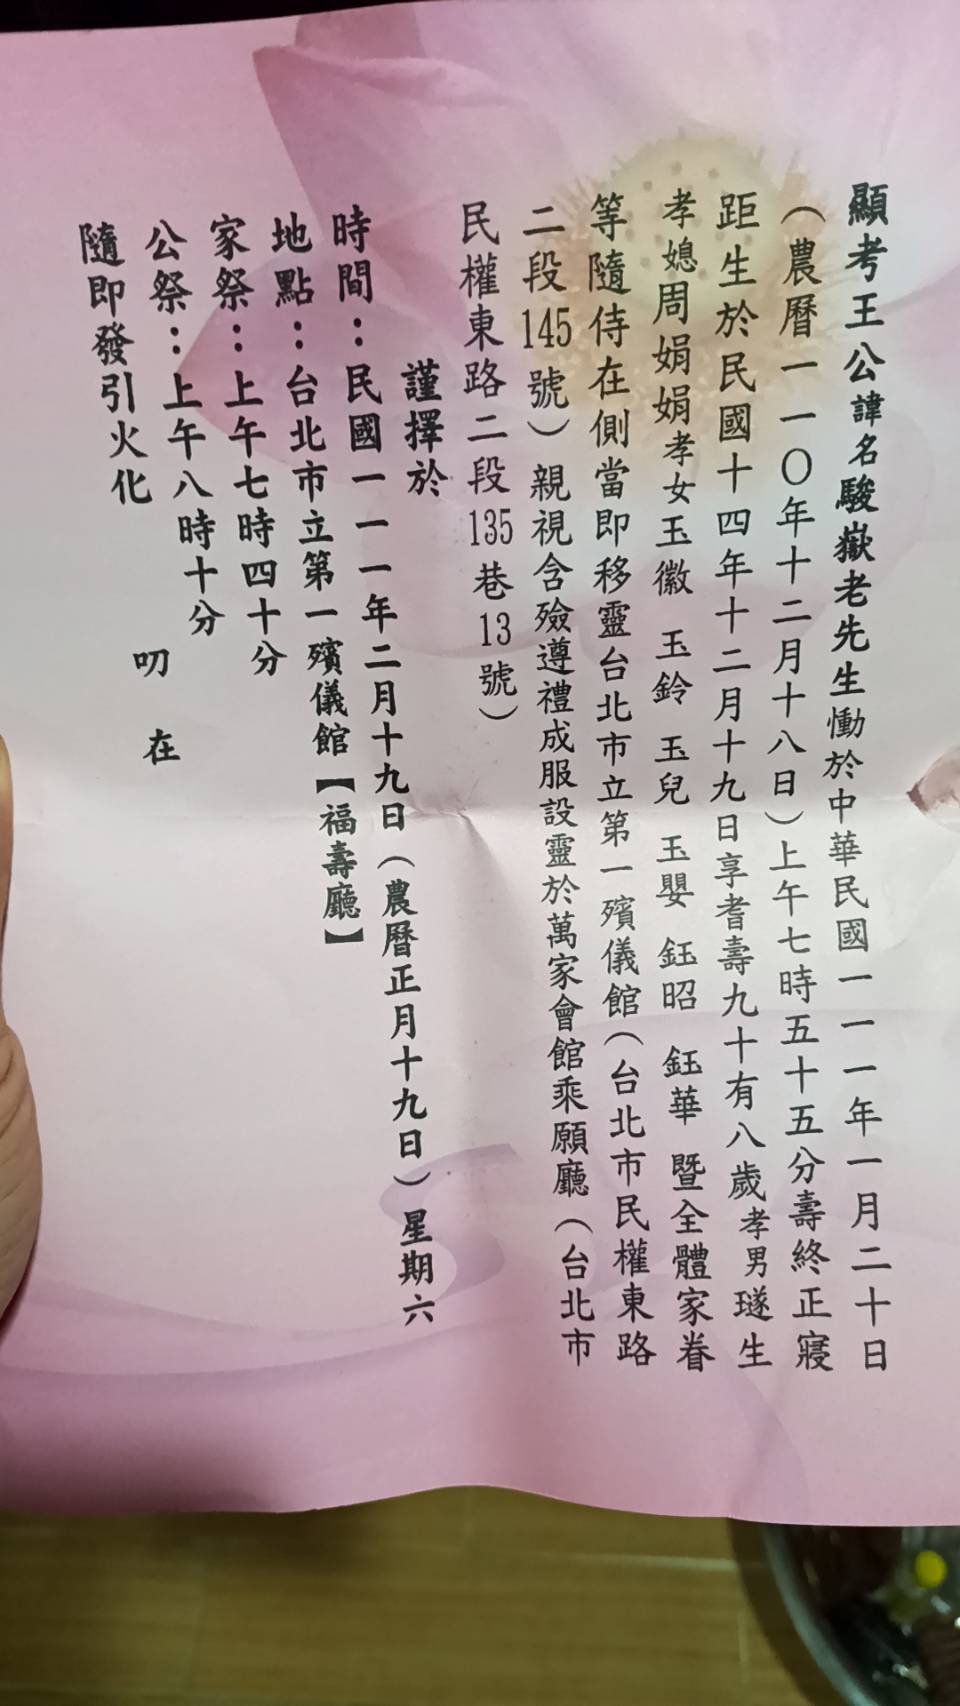 顯考王公諱名駿嶽老先生慟於中華民國一一一年一月二十日
（農曆一一〇年十二月十八日）上午七時五十五分壽終正寢
距生於民國十四年十二月十九日享耆壽九十有八歲孝男璲生
孝媳周娟娟孝女玉徽 玉鈴 玉兒 玉嬰 鈺昭 鈺華 暨全體家眷
等隨侍在側當即移靈台北市立第一殯儀館（台北市民權東路
二段145號）親視含殮遵禮成服設靈於萬家會館乘願廳（台北市
民權東路二段135巷13號）
謹擇於
時間：民國一一一年二月十九日（農曆正月十九日）星期六
地點：台北市立第一殯儀館【福壽廳】
家祭：上午七時四十分
公祭：上午八時十分
隨即發引火化
叨 在